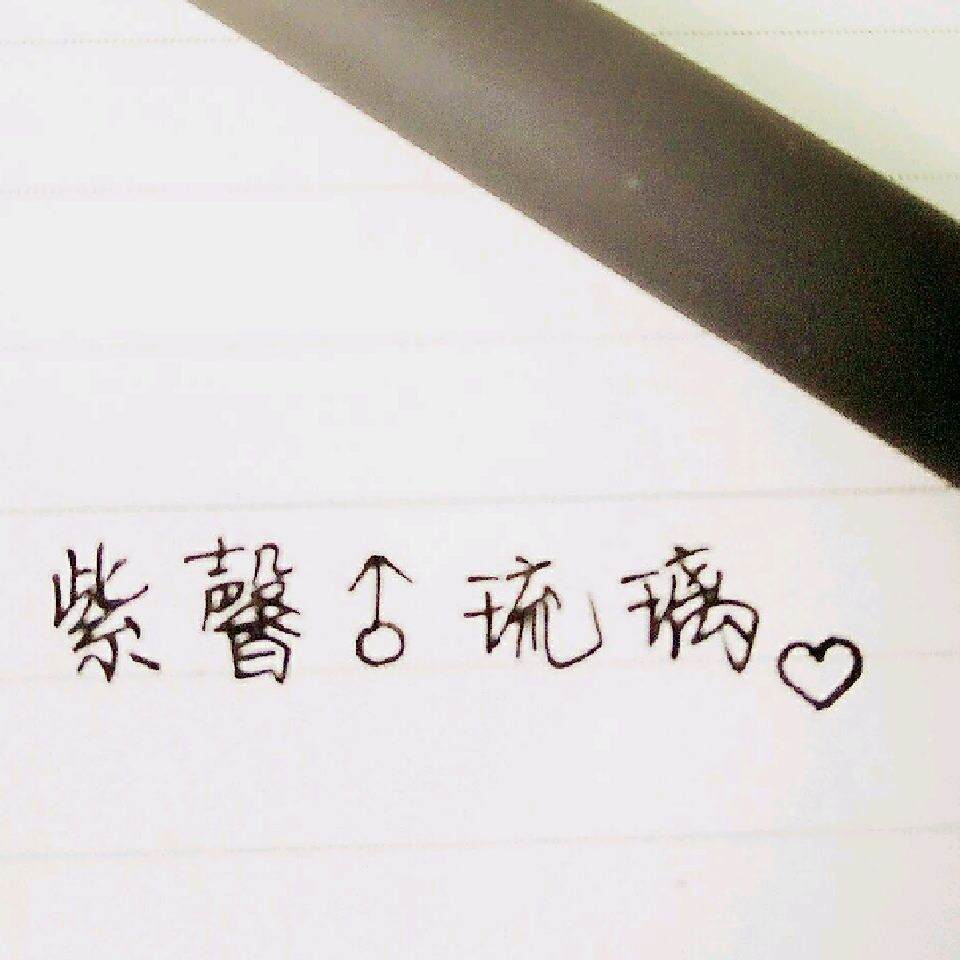 紫馨♂琉璃♡